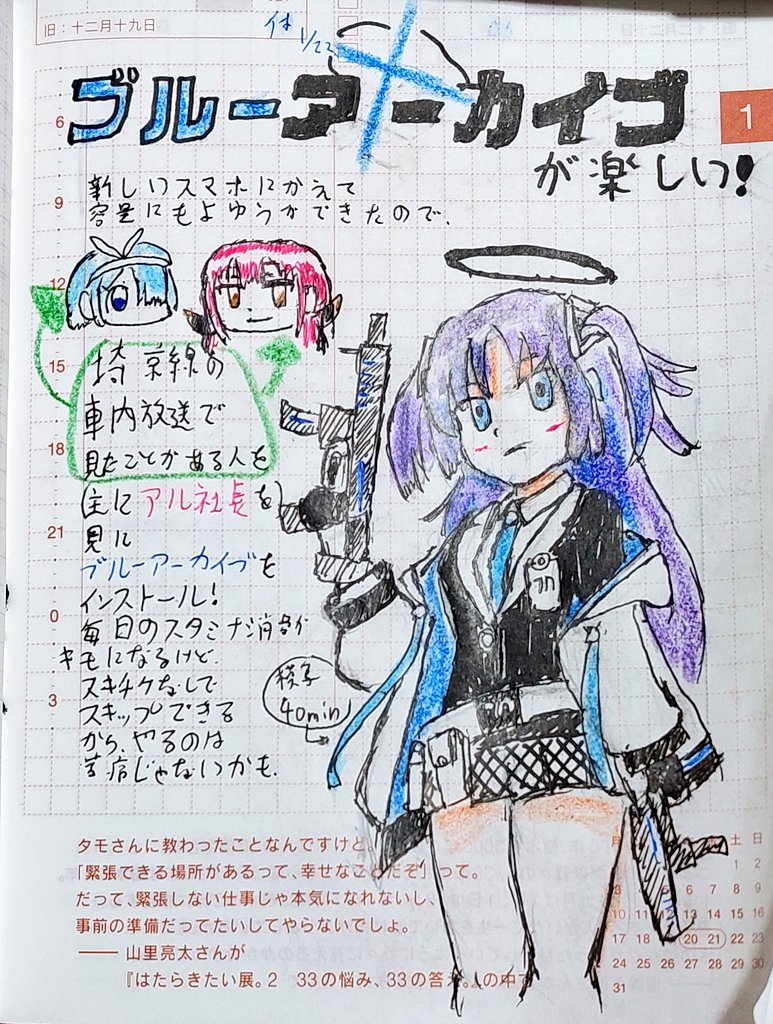 旧：十二月十九日
休 1/22
ブルーアーカイブ
が楽しい!
1
新しいスマホにかえて
容量にもよゆうができたので、
埼京線の
車内放送で
見たことがある人を
(主にアル社長を)
見に
ブルーアーカイブを
インストール!
毎日のスタミナ消費が
キモになるけど、
スキチケなしで
スキップできる
から、やるのは
苦痛じゃないかも。
40min
6
9
12
15
18
21
0
3
タモさんに教わったことなんですけど。
「緊張できる場所があるって、幸せなことだぞ」って。
だって、緊張しない仕事じゃ本気になれないし、
事前の準備だってたいしてやらないでしょ。
――山里亮太さんが
『はたらきたい展。2 33の悩み、33の答え。』の中で
月 土 日
1 2
8 9
10 11 12 13 14 15 16
17 18 19 20 21 22 23
24 25 26 27 28 29 30
31